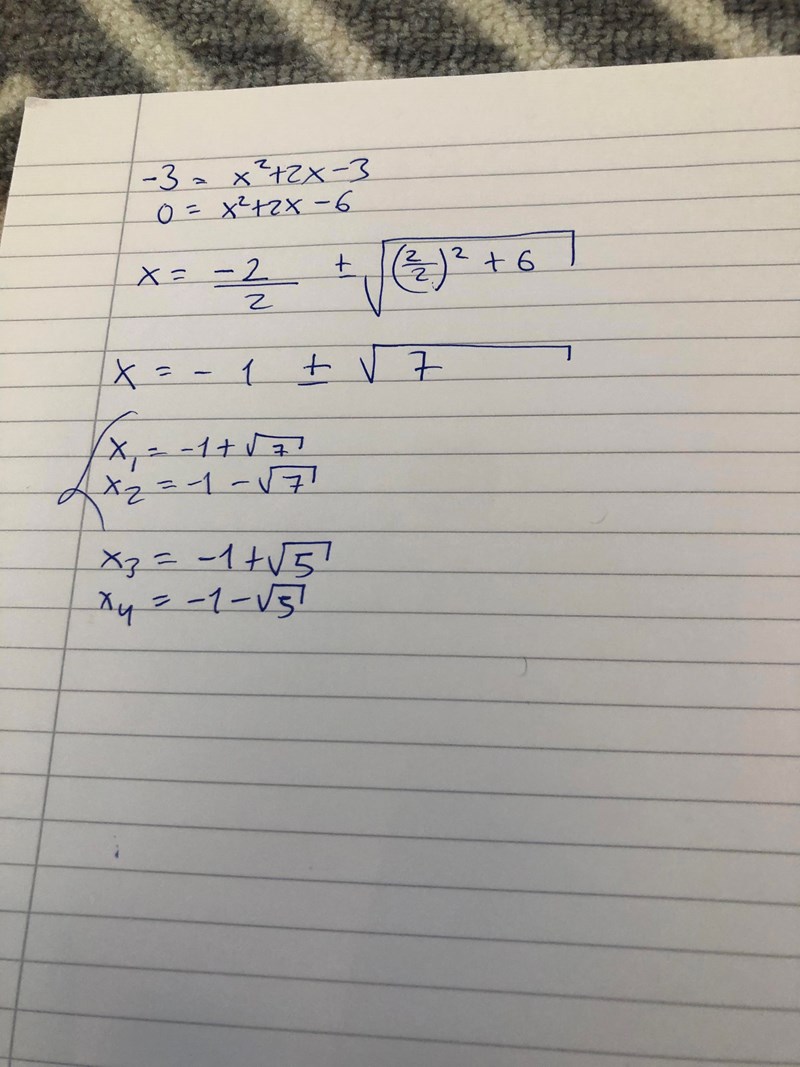 -3 = x²+2x-3
0 = x²+2x-6
x = -2/2 ± √((2/2)² + 6)
x = -1 ± √7
x₁ = -1+√7
x₂ = -1-√7
x₃ = -1+√5
x₄ = -1-√5